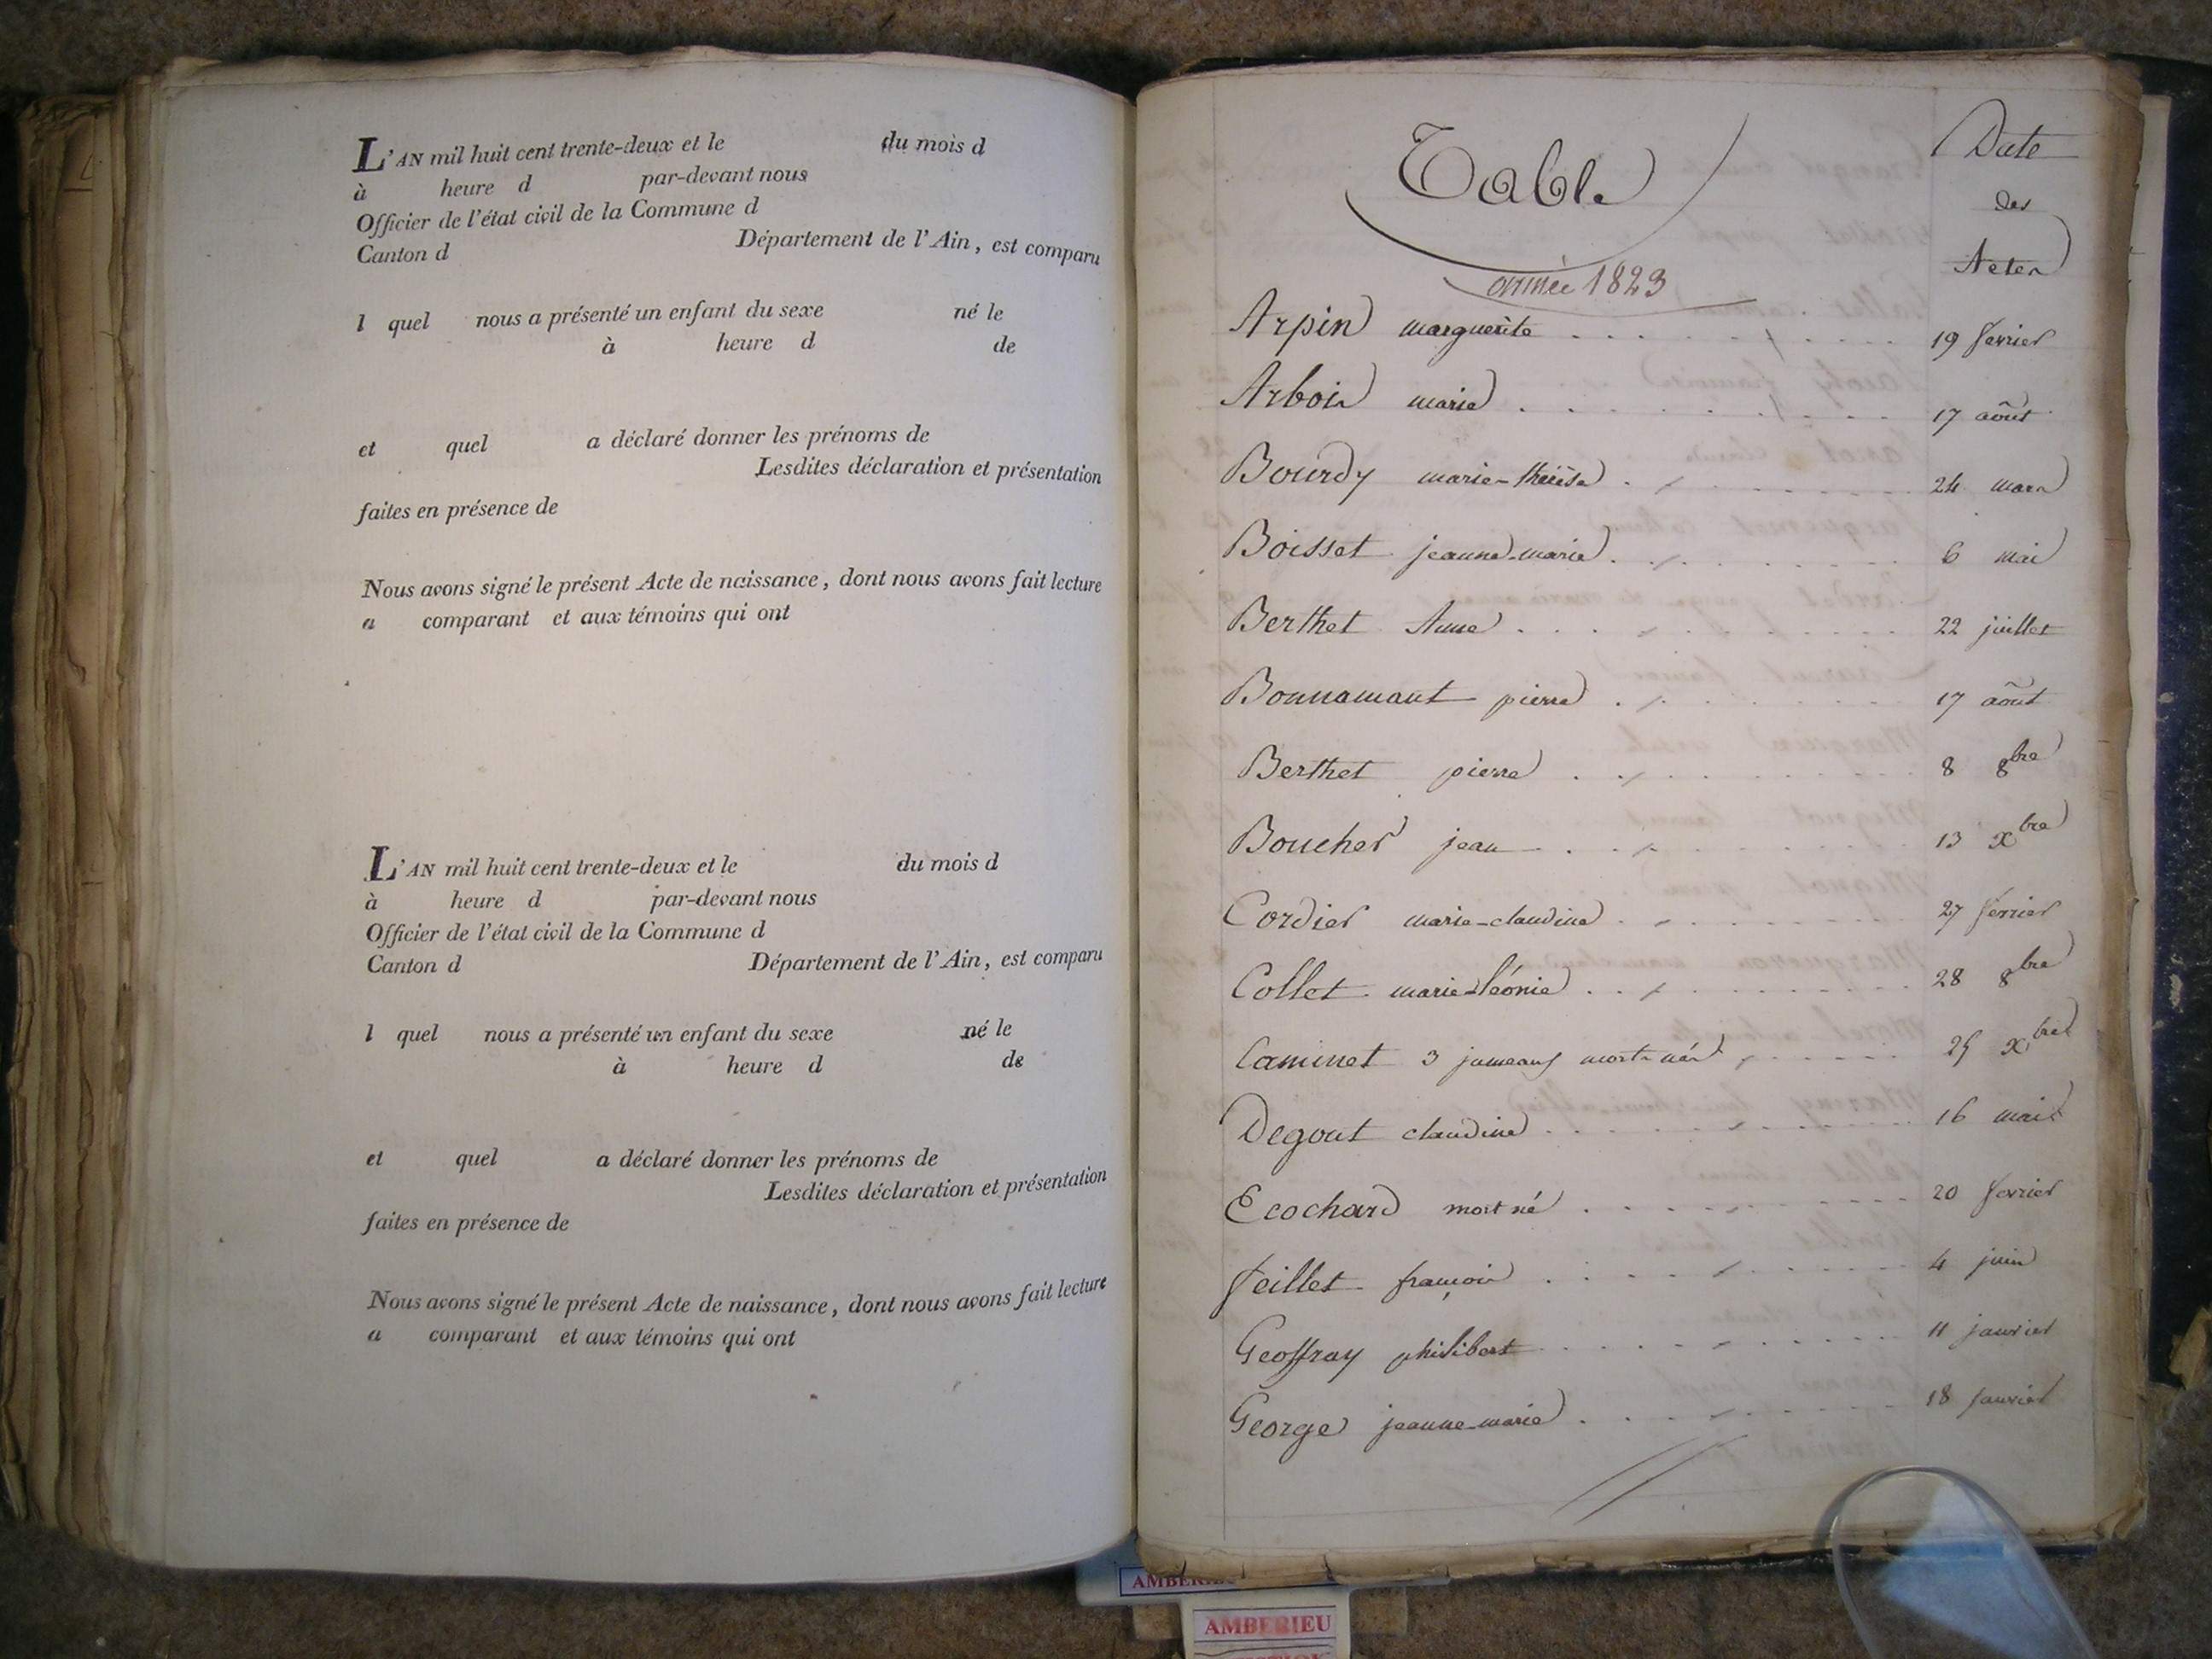 L'AN mil huit cent trente-deux et le du mois d
à heure d par-devant nous
Officier de l'état civil de la Commune d
Canton d Département de l'Ain, est comparu
l quel nous a présenté un enfant du sexe né le
à heure d de
et quel a déclaré donner les prénoms de
Lesdites déclaration et présentation
faites en présence de
Nous avons signé le présent Acte de naissance, dont nous avons fait lecture
a comparant et aux témoins qui ont
L'AN mil huit cent trente-deux et le du mois d
à heure d par-devant nous
Officier de l'état civil de la Commune d
Canton d Département de l'Ain, est comparu
l quel nous a présenté un enfant du sexe né le
à heure d de
et quel a déclaré donner les prénoms de
Lesdites déclaration et présentation
faites en présence de
Nous avons signé le présent Acte de naissance, dont nous avons fait lecture
a comparant et aux témoins qui ont
Table
année 1823
Date
des
Actes
Arpin marguerite 19 fevrier
Arbois marie 17 août
Bourdy marie-thérèse 24 mars
Boisset jeanne-marie 6 mai
Berthet Anne 22 juillet
Bonnamant pierre 17 août
Berthet pierre 8 8bre
Boucher jean 13 xbre
Cordier marie-claudine 27 fevrier
Collet marie-léonie 28 8bre
Caminet 3 jumeaux morts nés 25 xbre
Degout claudine 16 mai
Ecochard mort né 20 fevrier
Feillet françois 4 juin
Geoffray philibert 11 janvier
George jeanne-marie 18 janvier
AMBERIEU